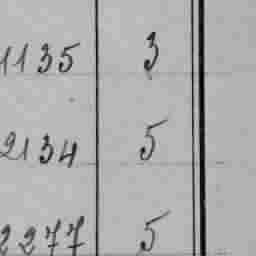 1135 3
2134 5
2277 5